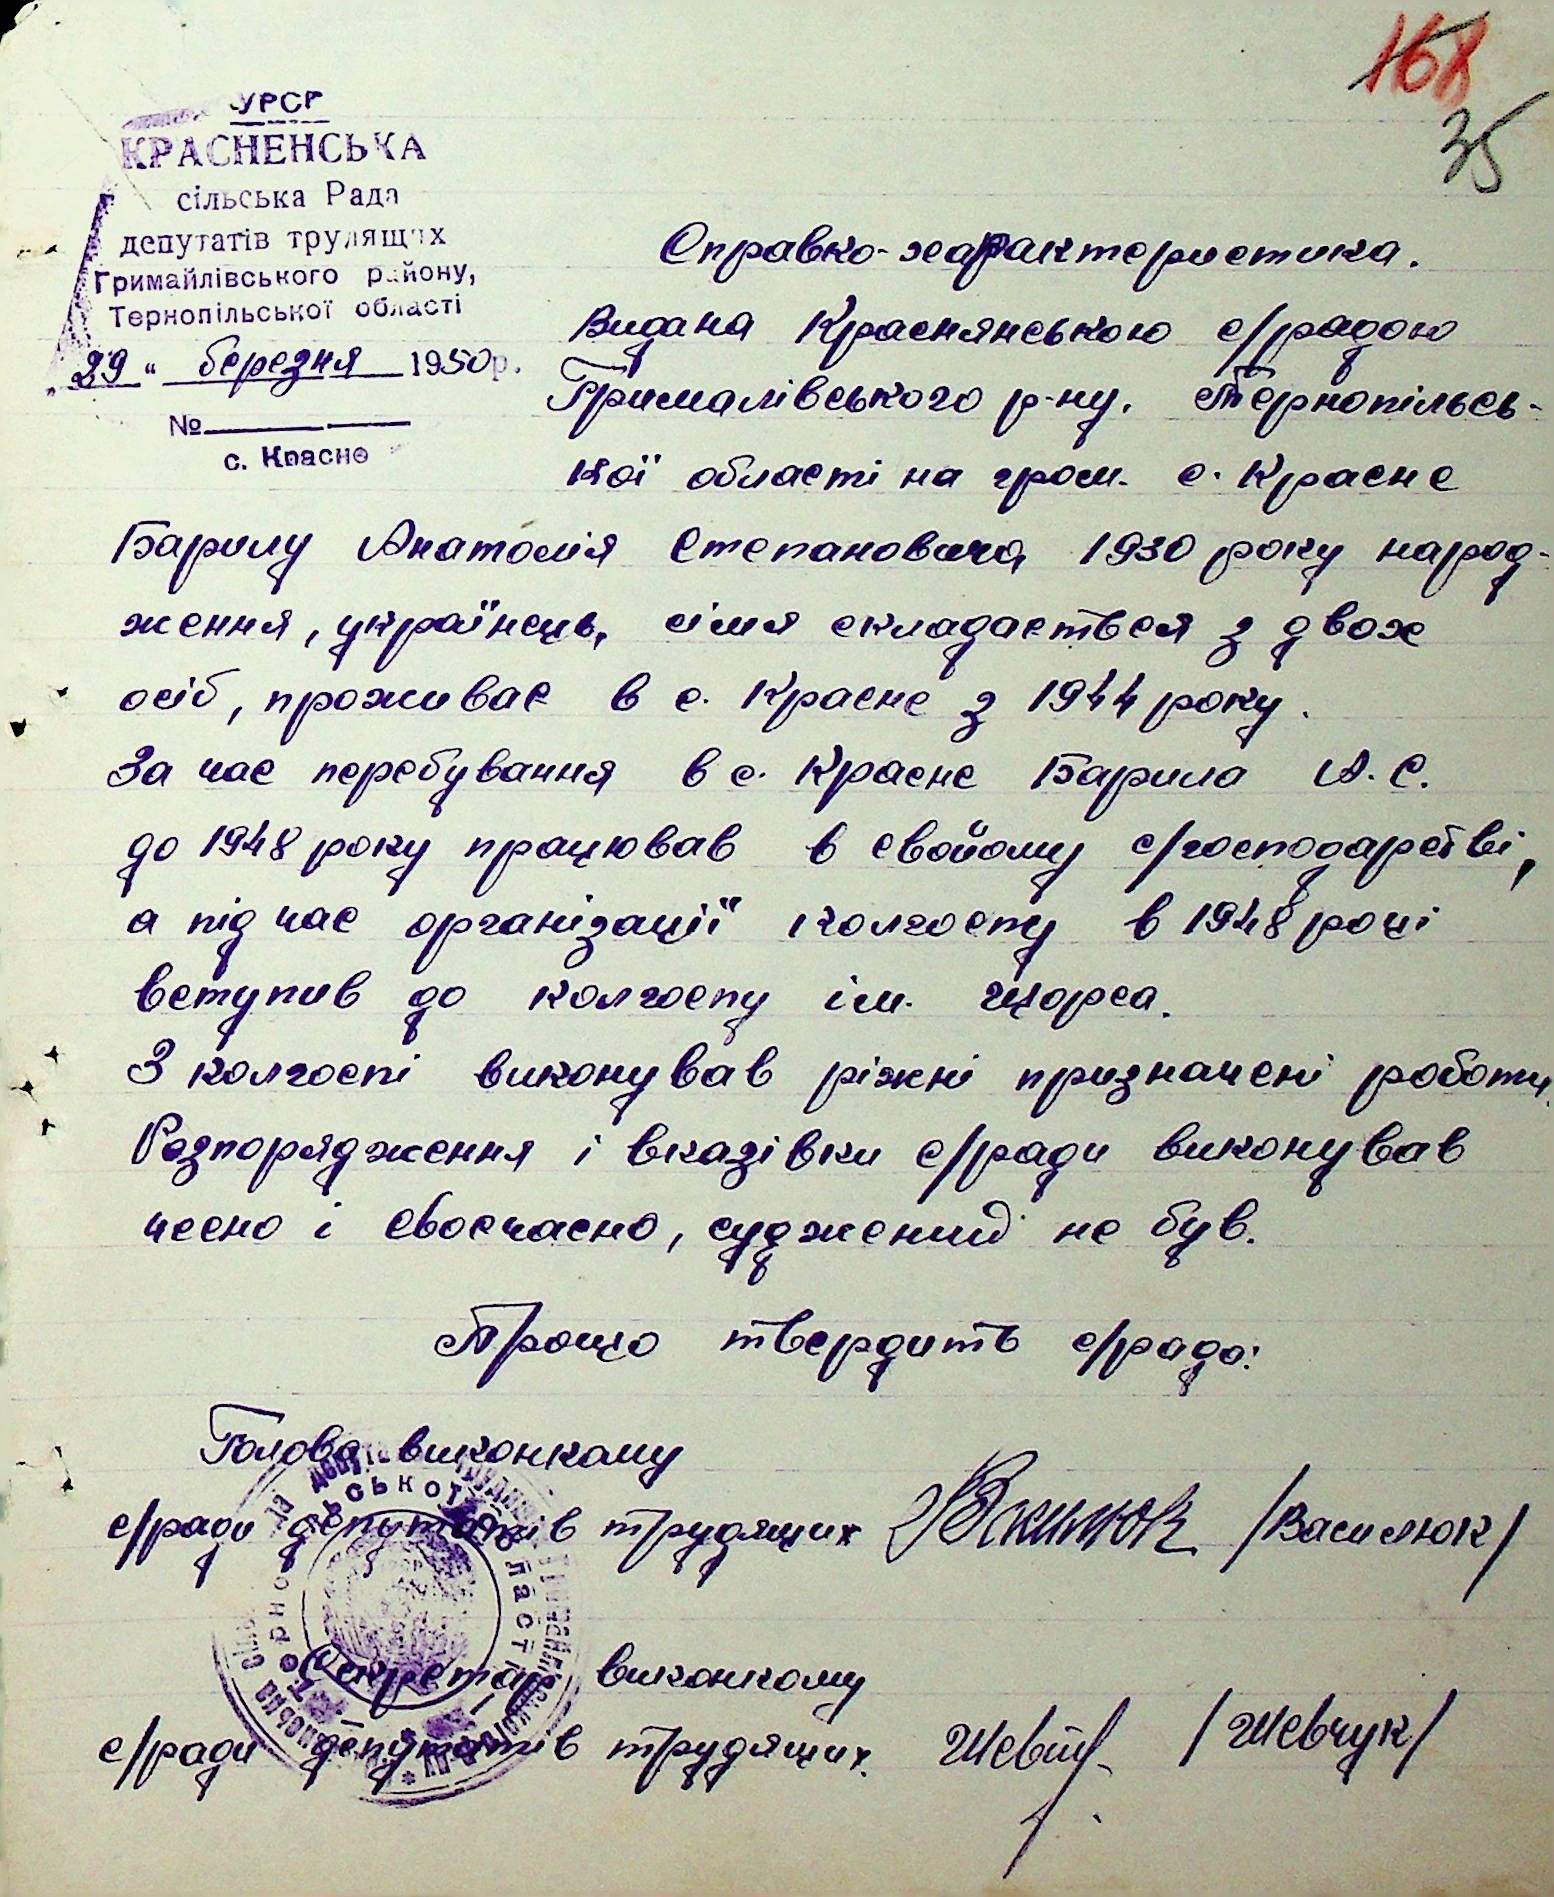 168
35
УРСР
КРАСНЕНСЬКА
сільська Рада
депутатів трудящих
Гримайлівського району,
Тернопільської області
„29“ березня 1950р.
№
с. Красне
Справко-характеристика.
Видана Краснянською с/радою
Грималівського р-ну, Тернопільсь-
кої області на гром. с. Красне
Барилу Анатолія Степановича, 1930 року народ-
ження, українець, сімя складається з двох
осіб, проживає в с. Красне з 1944 року.
За час перебування в с. Красне Барила А. С.
до 1948 року працював в свойому с/господарстві,
а під час організації колгоспу в 1948 році
вступив до колгоспу ім. Щорса.
З колгоспі виконував ріжні призначені роботи.
Розпорядження і вказівки с/ради виконував
чесно і своєчасно, судженний не був.
Прощо твердить с/рада:
Голова виконкому
с/ради депутатів трудящих /Василюк/
Секретар виконкому
с/ради депутатів трудящих. /Шевчук/